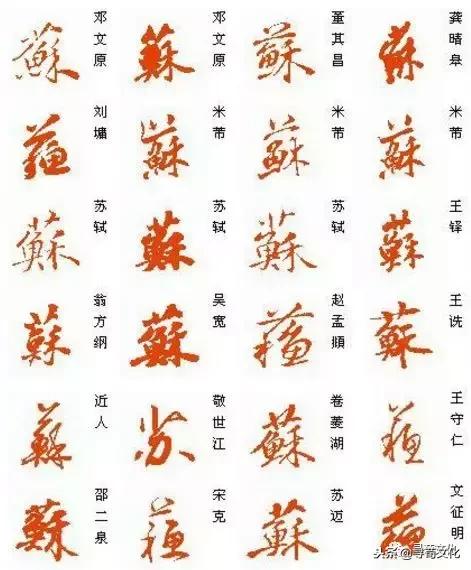 蘇 邓文原
蘇 邓文原
蘇 董其昌
蘇 龚晴皋
蘓 刘墉
蘇 米芾
蘇 米芾
蘇 米芾
蘇 苏轼
蘇 苏轼
蘇 苏轼
蘇 王铎
蘇 翁方纲
蘇 吴宽
蘓 赵孟頫
蘇 王诜
蘇 近人
苏 敬世江
蘇 卷菱湖
蘓 王守仁
蘇 邵二泉
蘓 宋克
蘇 苏迈
蘓 文征明
头条 文化